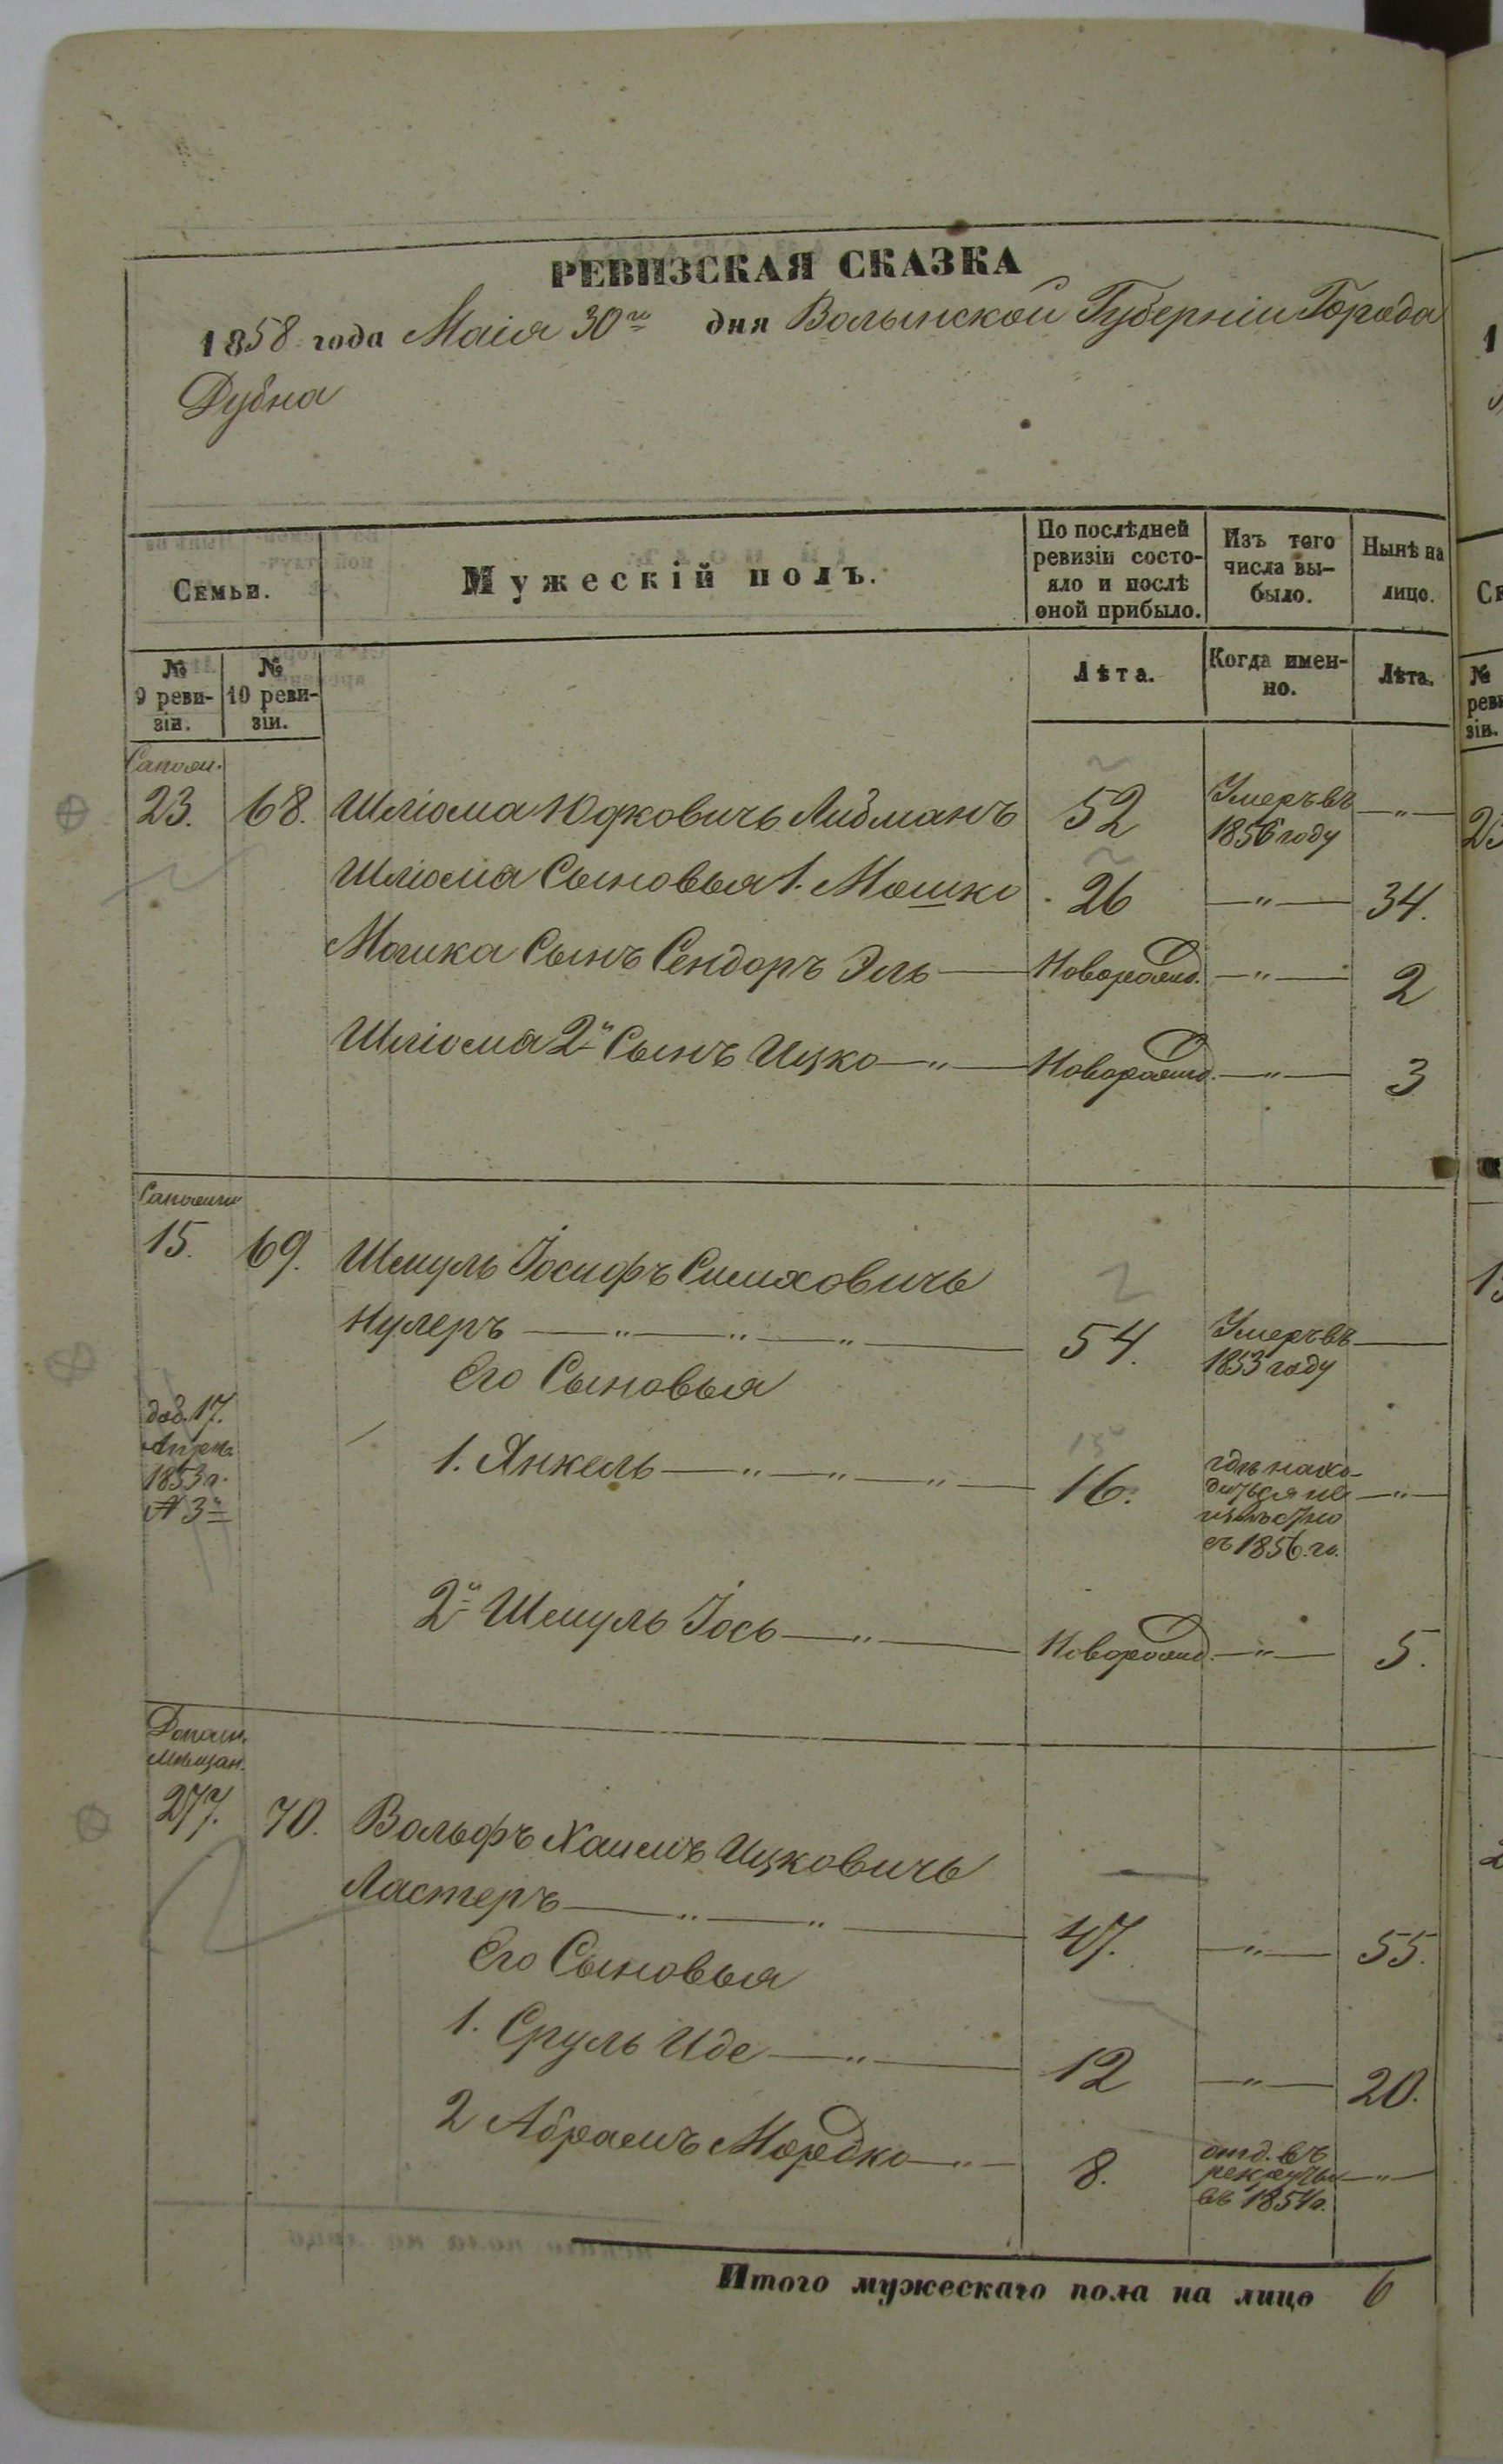 РЕВИЗСКАЯ СКАЗКА
1858 года Маія 30го дня Волынской Губерніи Города
Дубна
Семьи.
Мужескій полъ.
По послѣдней ревизіи состояло и послѣ оной прибыло.
Изъ того числа выбыло.
Нынѣ на лицо.
№ 9 ревизіи.
№ 10 ревизіи.
Лѣта.
Когда именно.
Лѣта.
23. 68. Шліома Юфковичъ Либманъ 52 Умеръ въ 1856 году —"—
Шліома Сыновья 1. Мошко 26 —"— 34.
Мошка Сынъ Сендоръ Эль — Новорожд. —"— 2
Шліома 2й Сынъ Ицко —"— Новорожд. —"— 3
15. 69. Шмуль Іосифъ Симховичъ
Нулеръ —"—"—"— 54. Умеръ въ 1853 году —
Его Сыновья
доб. 17. Апрел. 1853 г. № 3й
1. Янкель —"—"—"— 16. гдѣ находится не извѣстно съ 1856. го. —"—
2й Шмуль Іось —"— Новорожд. —"— 5.
мѣщан.
277. 70. Вольфъ Хаимъ Ицковичъ
Ластеръ —"—"— 47. —"— 55.
Его Сыновья
1. Сруль Иде —"— 12 —"— 20.
2 Абрамъ Мордко —"— 8. отд. въ рекруты въ 1854 г. —"—
Итого мужескаго пола на лицо 6